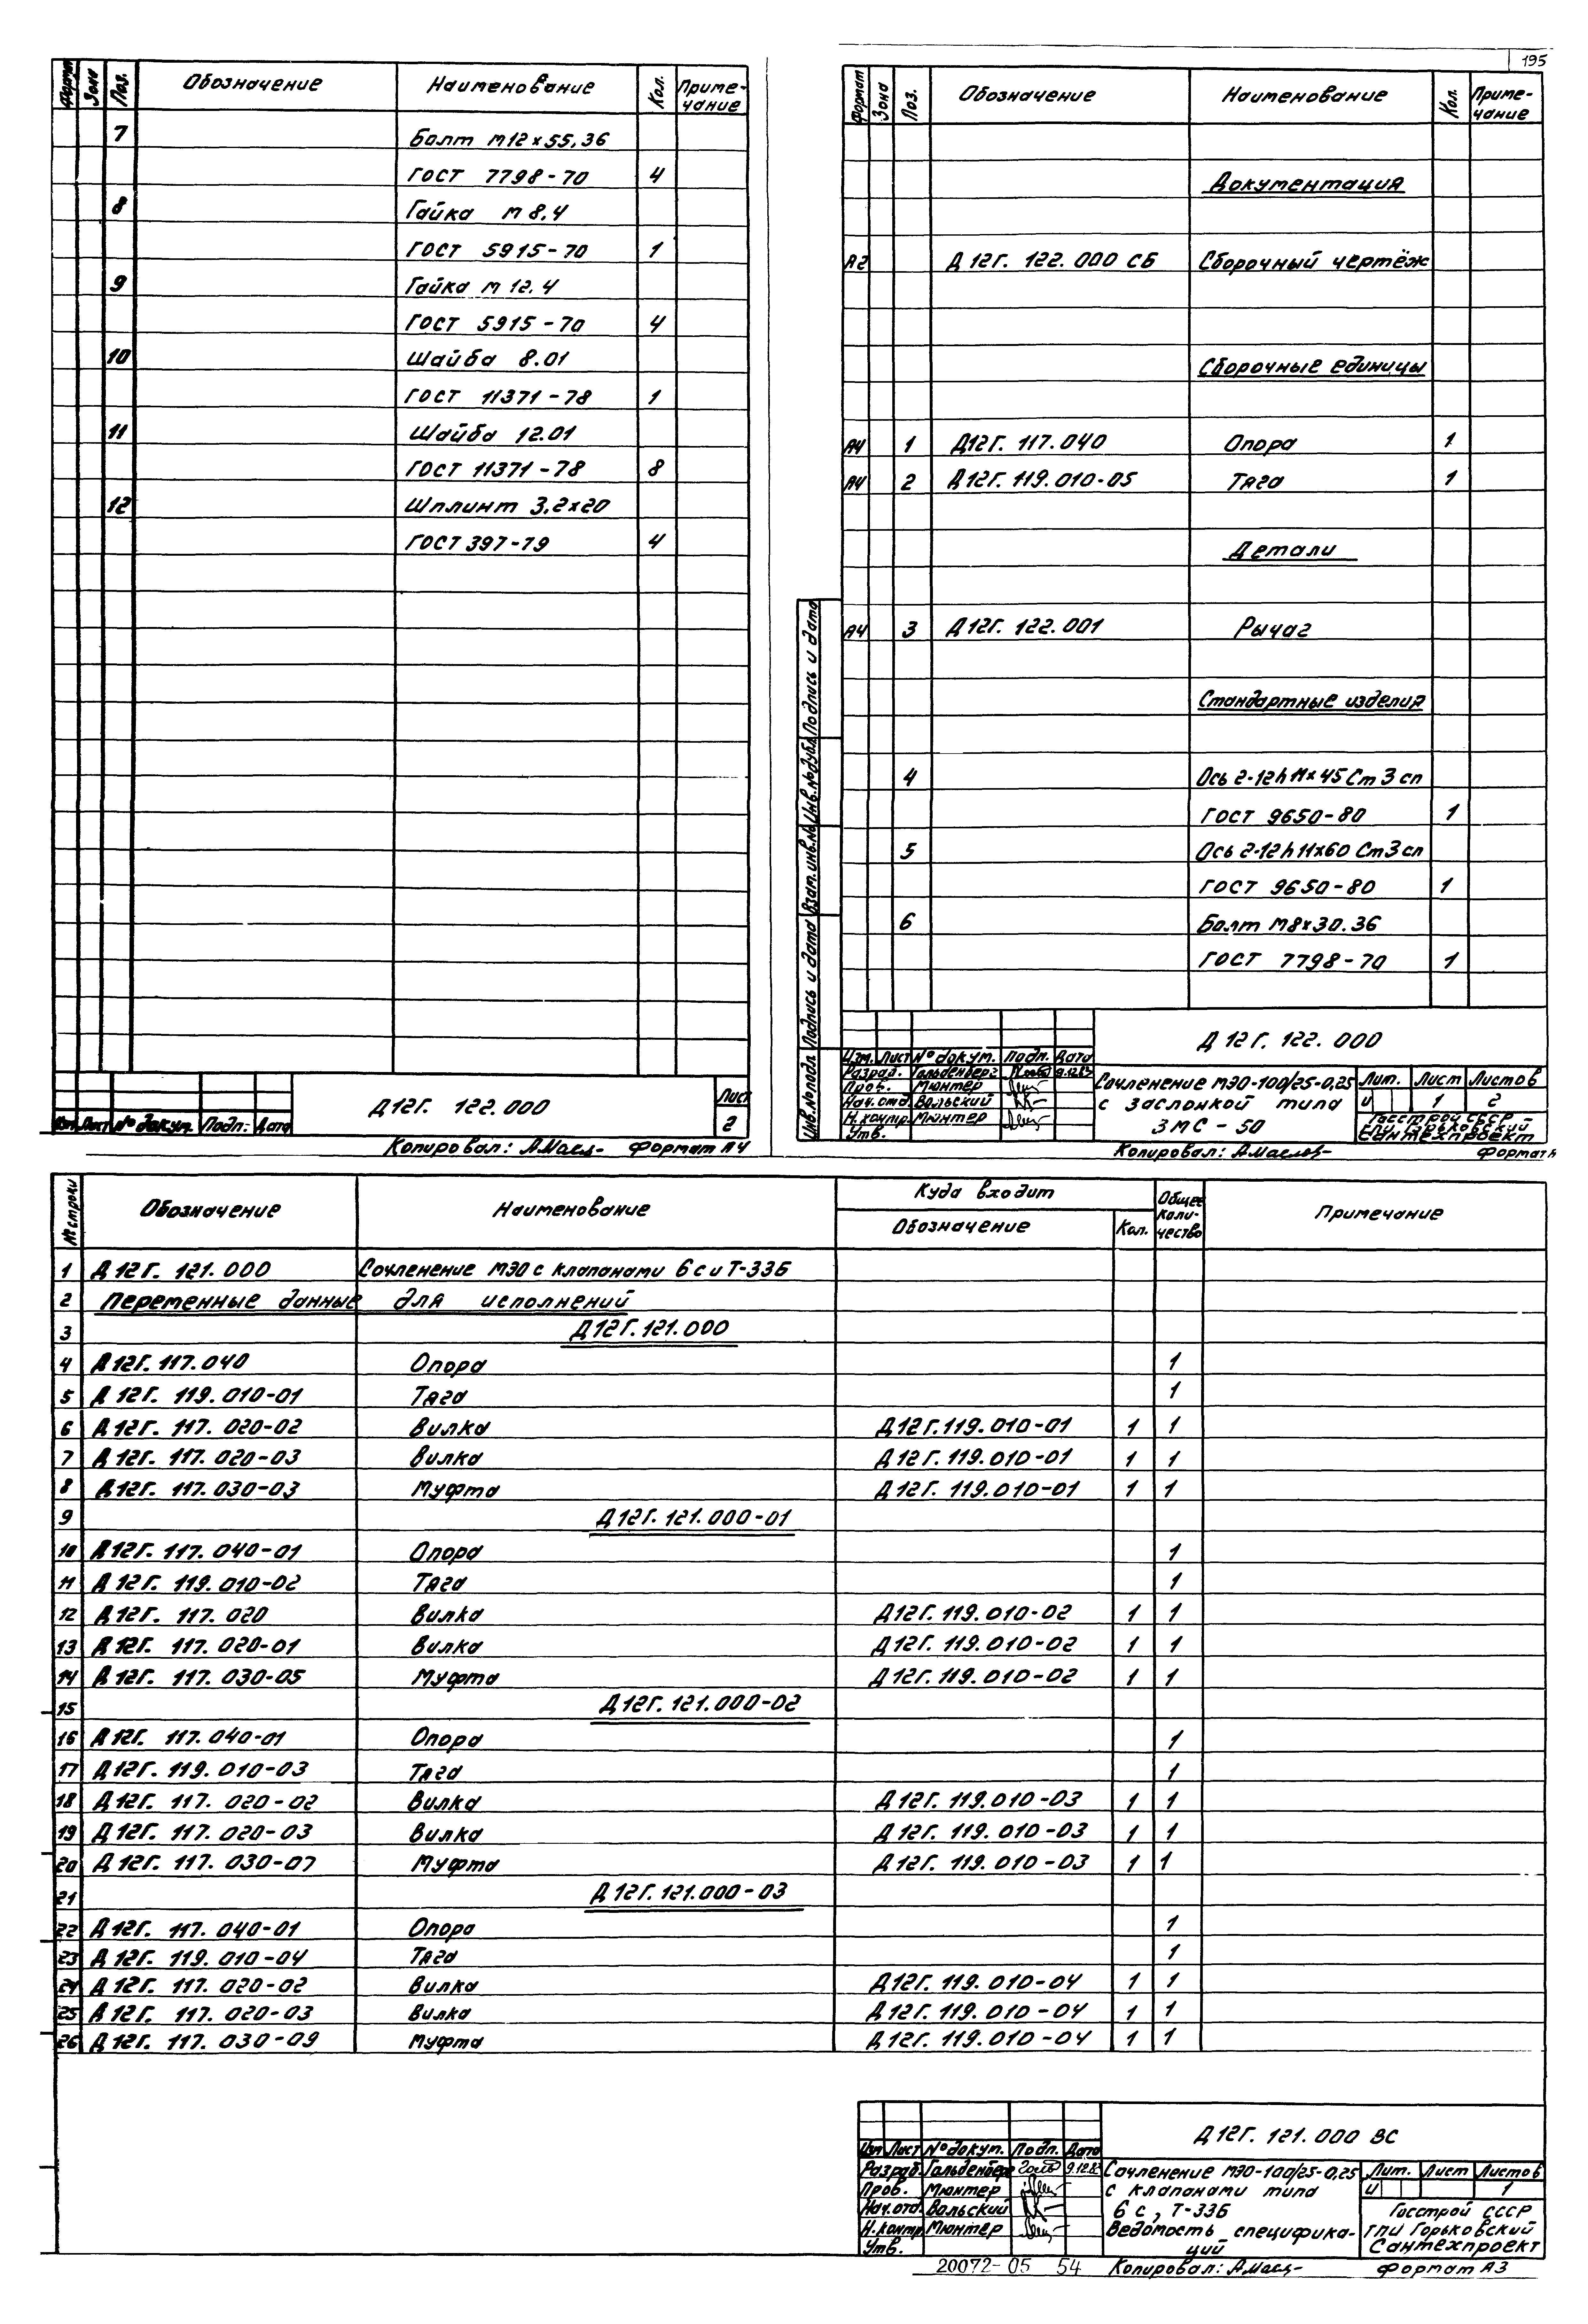 195
Формат Зона Поз. Обозначение Наименование Кол. Приме-
чание
7 Болт м12х55.36
ГОСТ 7798-70 4
8 Гайка м 8.4
ГОСТ 5915-70 1
9 Гайка м 12.4
ГОСТ 5915-70 4
10 Шайба 8.01
ГОСТ 11371-78 1
11 Шайба 12.01
ГОСТ 11371-78 8
12 Шплинт 3,2х20
ГОСТ 397-79 4
Д12Г. 122.000
Лист
2
Изм. Лист № докум. Подп. Дата
Копировал: Формат А4
Формат Зона Поз. Обозначение Наименование Кол. Приме-
чание
Документация
А2 Д12Г. 122.000 СБ Сборочный чертёж
Сборочные единицы
А4 1 Д12Г. 117.040 Опора 1
А4 2 Д12Г. 119.010-05 Тяга 1
Детали
А4 3 Д12Г. 122.001 Рычаг
Стандартные изделия
4 Ось 2-12h11х45 Ст3сп
ГОСТ 9650-80 1
5 Ось 2-12h11х60 Ст3сп
ГОСТ 9650-80 1
6 Болт м8х30.36
ГОСТ 7798-70 1
Инв.№подл. Подпись и дата Взам.инв.№ Инв.№дубл. Подпись и дата
Д12Г. 122.000
Изм. Лист № докум. Подп. Дата
Разраб. Гольденберг
Пров. Мюнтер
Нач.отд. Вольский
Н.контр. Мюнтер
Утв.
Сочленение МЭО-100/25-0,25
с заслонкой типа
ЗМС-50
Лит. Лист Листов
И 1 2
Госстрой СССР
ГПИ Горьковский
Сантехпроект
Копировал: Формат
№ строки Обозначение Наименование Куда входит Общее
коли-
чество Примечание
Обозначение Кол.
1 Д12Г. 121.000 Сочленение МЭО с клапанами 6с и Т-33Б
2 Переменные данные для исполнений
3 Д12Г.121.000
4 Д12Г. 117.040 Опора 1
5 Д12Г. 119.010-01 Тяга 1
6 Д12Г. 117.020-02 Вилка Д12Г.119.010-01 1 1
7 Д12Г. 117.020-03 Вилка Д12Г.119.010-01 1 1
8 Д12Г. 117.030-03 Муфта Д12Г. 119.010-01 1 1
9 Д12Г.121.000-01
10 Д12Г. 117.040-01 Опора 1
11 Д12Г. 119.010-02 Тяга 1
12 Д12Г. 117.020 Вилка Д12Г. 119.010-02 1 1
13 Д12Г. 117.020-01 Вилка Д12Г. 119.010-02 1 1
14 Д12Г. 117.030-05 Муфта Д12Г. 119.010-02 1 1
15 Д12Г.121.000-02
16 Д12Г. 117.040-01 Опора 1
17 Д12Г. 119.010-03 Тяга 1
18 Д12Г. 117.020-02 Вилка Д12Г. 119.010-03 1 1
19 Д12Г. 117.020-03 Вилка Д12Г. 119.010-03 1 1
20 Д12Г. 117.030-07 Муфта Д12Г. 119.010-03 1 1
21 Д12Г.121.000-03
22 Д12Г. 117.040-01 Опора 1
23 Д12Г. 119.010-04 Тяга 1
24 Д12Г. 117.020-02 Вилка Д12Г. 119.010-04 1 1
25 Д12Г. 117.020-03 Вилка Д12Г. 119.010-04 1 1
26 Д12Г. 117.030-09 Муфта Д12Г. 119.010-04 1 1
Д12Г. 121.000 ВС
Изм Лист № докум. Подп. Дата
Разраб. Гольденберг
Пров. Мюнтер
Нач.отд. Вольский
Н.контр. Мюнтер
Утв.
Сочленение МЭО-100/25-0,25
с клапанами типа
6с, Т-33Б
Ведомость специфика-
ций
Лит. Лист Листов
И 1
Госстрой СССР
ГПИ Горьковский
Сантехпроект
20072-05 54
Копировал: Формат А3